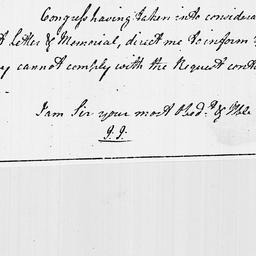 Congress having taken into considera
t Letter & Memorial, direct me to inform
y cannot comply with the Request cont
I am Sir your most Obed.t & Hble
J. J.